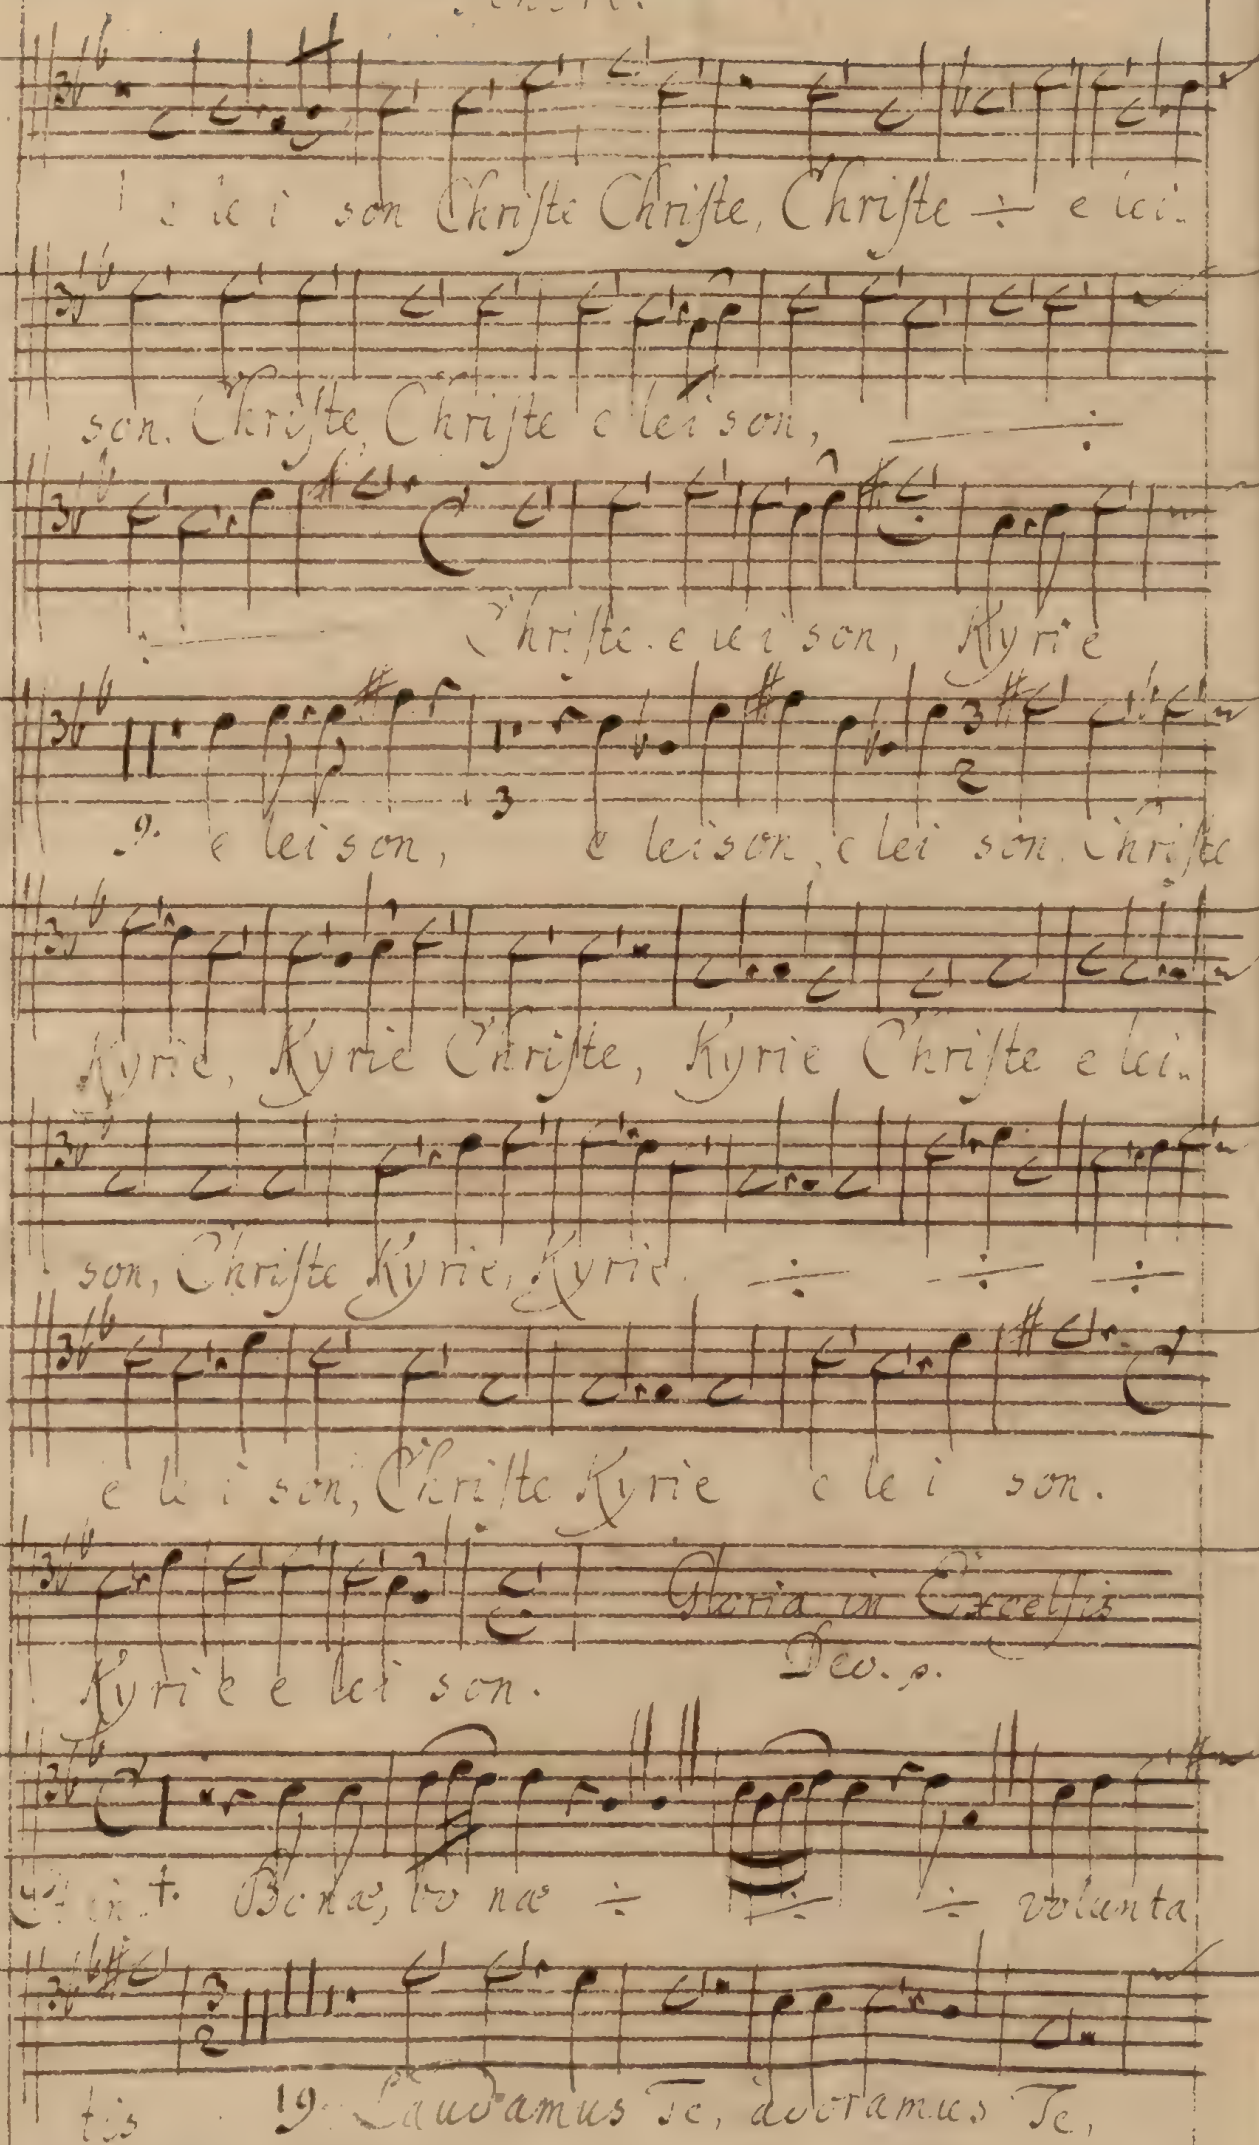 e lei son Chriſte Chriſte, Chriſte ÷ e lei-
son. Chriſte, Chriſte e lei son, ÷
÷ Chriſte. e lei son, Kyrie
9. e lei son, 3 e lei son, e lei son. Chriſte
Kyrie, Kyrie Chriſte, Kyrie Chriſte e lei-
son, Chriſte Kyrie, Kyrie. ÷ ÷ ÷
e le i son, Chriſte Kyrie e le i son.
Gloria in Excelſis
Deo.
Kyrie e lei son.
Bonæ, bo næ ÷ ÷ ÷ volunta
tis 19. Laudamus Te, adoramus Te,